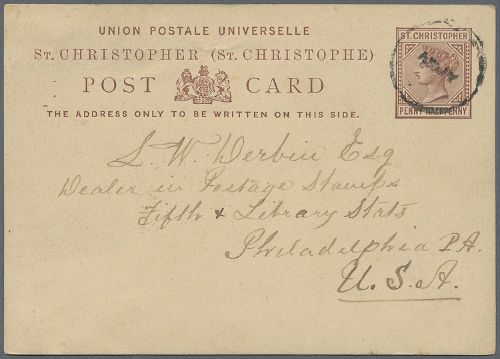 UNION POSTALE UNIVERSELLE
ST. CHRISTOPHER (ST. CHRISTOPHE)
POST CARD
THE ADDRESS ONLY TO BE WRITTEN ON THIS SIDE.
ST. CHRISTOPHER
PENNY HALFPENNY
L. W. Derbin Esq
Dealer in Postage Stamps
Fifth & Library Strts
Philadelphia PA.
U.S.A.